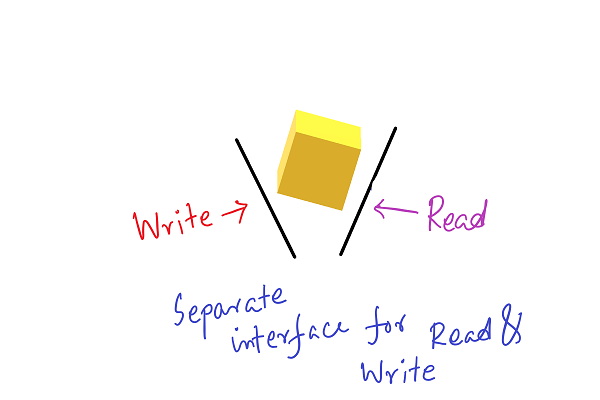 Write → ← Read
Separate
interface for Read &
Write